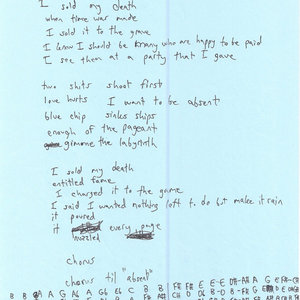 I sold my death
when time was made
I sold it to the grave
I know I should be many who are happy to be paid
I see them at a party that I gave
two shits shoot first
love hurts I want to be absent
blue chip sinks ships
enough of the pageant
gimme the labyrinth
I sold my death
entitled fame
I charged it to the game
I said I wanted nothing left to do but make it rain
it poured
it every page
muzzled
chorus
chorus til "absent"